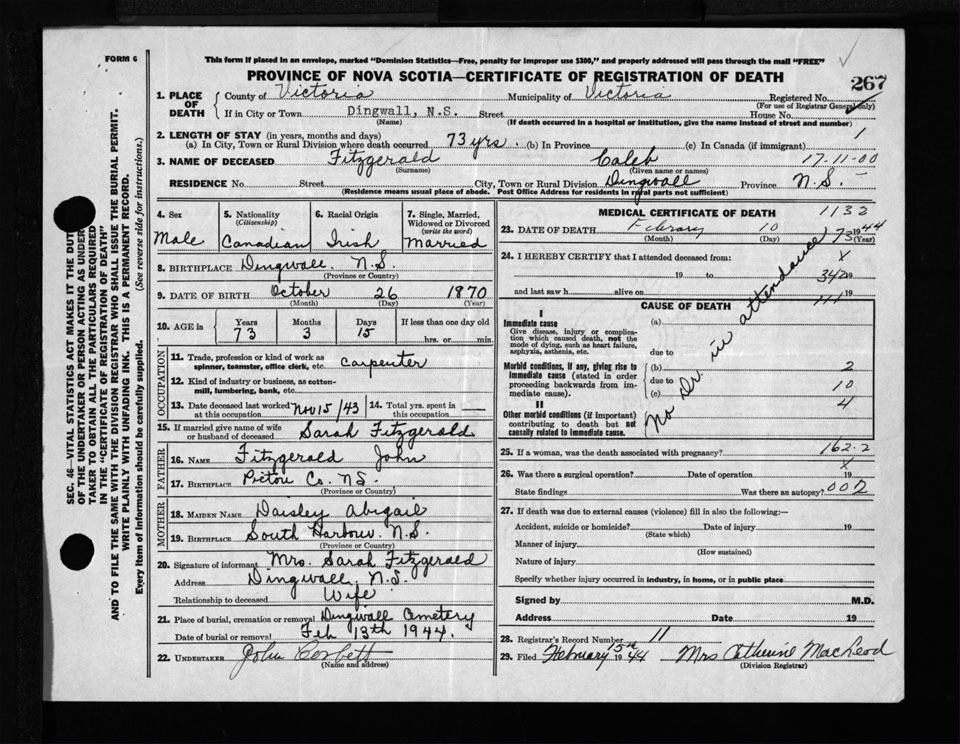 FORM 6
This form if placed in an envelope, marked "Dominion Statistics—Free, penalty for improper use $300," and properly addressed will pass through the mail "FREE"
PROVINCE OF NOVA SCOTIA—CERTIFICATE OF REGISTRATION OF DEATH
267
1. PLACE OF DEATH
County of Victoria Municipality of Victoria Registered No.
(For use of Registrar General only)
If in City or Town Dingwall, N.S. Street House No.
(Name) (If death occurred in a hospital or institution, give the name instead of street and number)
2. LENGTH OF STAY (in years, months and days)
(a) In City, Town or Rural Division where death occurred 73 yrs. (b) In Province (c) In Canada (if immigrant) 1
3. NAME OF DECEASED Fitzgerald Caleb 17-11-00
(Surname) (Given name or names)
RESIDENCE No. Street City, Town or Rural Division Dingwall Province N.S.
(Residence means usual place of abode. Post Office Address for residents in rural parts not sufficient)
4. Sex
Male
5. Nationality
(Citizenship)
Canadian
6. Racial Origin
Irish
7. Single, Married, Widowed or Divorced
(write the word)
Married
8. BIRTHPLACE Dingwall N.S.
(Province or Country)
9. DATE OF BIRTH October 26 1870
(Month) (Day) (Year)
10. AGE in
Years Months Days If less than one day old
73 3 15 hrs. or min.
OCCUPATION
11. Trade, profession or kind of work as spinner, teamster, office clerk, etc. Carpenter
12. Kind of industry or business, as cotton-mill, lumbering, bank, etc.
13. Date deceased last worked at this occupation Nov 15/43
14. Total yrs. spent in this occupation —
15. If married give name of wife or husband of deceased Sarah Fitzgerald
FATHER
16. NAME Fitzgerald John
17. BIRTHPLACE Pictou Co. N.S.
(Province or Country)
MOTHER
18. MAIDEN NAME Daisley Abigail
19. BIRTHPLACE South Harbour. N.S.
(Province or Country)
20. Signature of informant Mrs. Sarah Fitzgerald
Address Dingwall, N.S.
Relationship to deceased Wife
21. Place of burial, cremation or removal Dingwall Cemetery
Date of burial or removal Feb 13th 1944.
22. UNDERTAKER John Corbett
(Name and address)
MEDICAL CERTIFICATE OF DEATH 1132
23. DATE OF DEATH February 10 1944
(Month) (Day) 73 (Year)
24. I HEREBY CERTIFY that I attended deceased from: X
19 to 342 19
and last saw h alive on 111 19
CAUSE OF DEATH
I
Immediate cause
Give disease, injury or complication which caused death, not the mode of dying, such as heart failure, asphyxia, asthenia, etc.
(a)
due to
Morbid conditions, if any, giving rise to immediate cause (stated in order proceeding backwards from immediate cause).
(b) 2
due to 10
(c) 4
II
Other morbid conditions (if important) contributing to death but not causally related to immediate cause.
No Dr. in attendance
25. If a woman, was the death associated with pregnancy? 162.2
26. Was there a surgical operation? Date of operation X 19
State findings Was there an autopsy? 002
27. If death was due to external causes (violence) fill in also the following:—
Accident, suicide or homicide? Date of injury 19
(State which)
Manner of injury
(How sustained)
Nature of injury
Specify whether injury occurred in industry, in home, or in public place
Signed by M.D.
Address Date 19
28. Registrar's Record Number 11
29. Filed February 15th 1944 Mrs Catherine MacLeod
(Division Registrar)
SEC. 46—VITAL STATISTICS ACT MAKES IT THE DUTY
OF THE UNDERTAKER OR PERSON ACTING AS UNDER
TAKER TO OBTAIN ALL THE PARTICULARS REQUIRED
IN THE "CERTIFICATE OF REGISTRATION OF DEATH"
AND TO FILE THE SAME WITH THE DIVISION REGISTRAR WHO SHALL ISSUE THE BURIAL PERMIT.
WRITE PLAINLY WITH UNFADING INK. THIS IS A PERMANENT RECORD.
Every item of information should be carefully supplied. (See reverse side for instructions.)